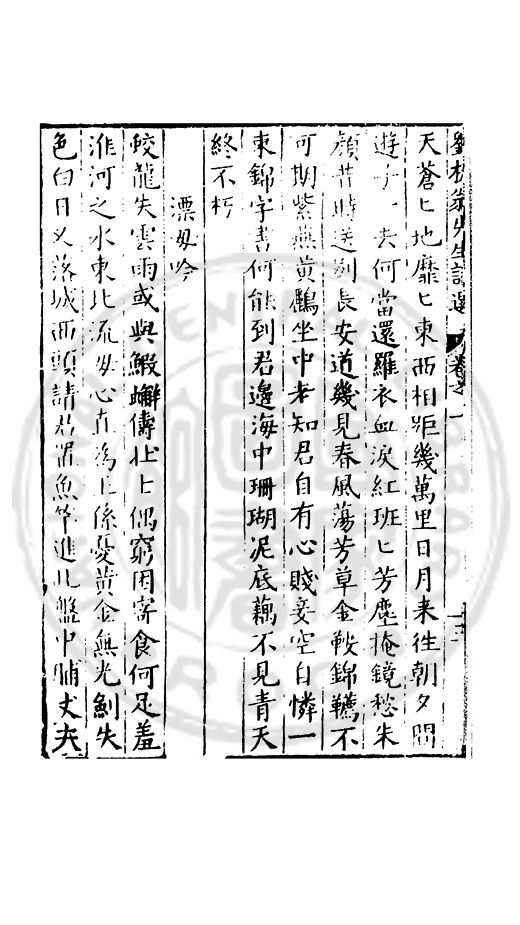 劉 先生詩選 卷
天蒼〻地靡〻東西相距幾萬里日月来往朝夕間
遊子一去何當還羅衣血淚紅班〻芳塵掩鏡愁朱
顔昔時送别長安道幾見春風蕩芳草金鞍錦韉不
可期紫燕黄鸝坐中老知君自有心賤妾空自憐一
柬錦字書何能到君邊海中珊瑚泥底藕不見青天
終不朽
漂母吟
蛟龍失雲雨或與鰕蠏儔壮士偶窮困寄食何足羞
淮河之水東北流母心直為王孫憂黄金無光劍失
色白日又落城西頭請君置魚竿進此盤中餔丈夫